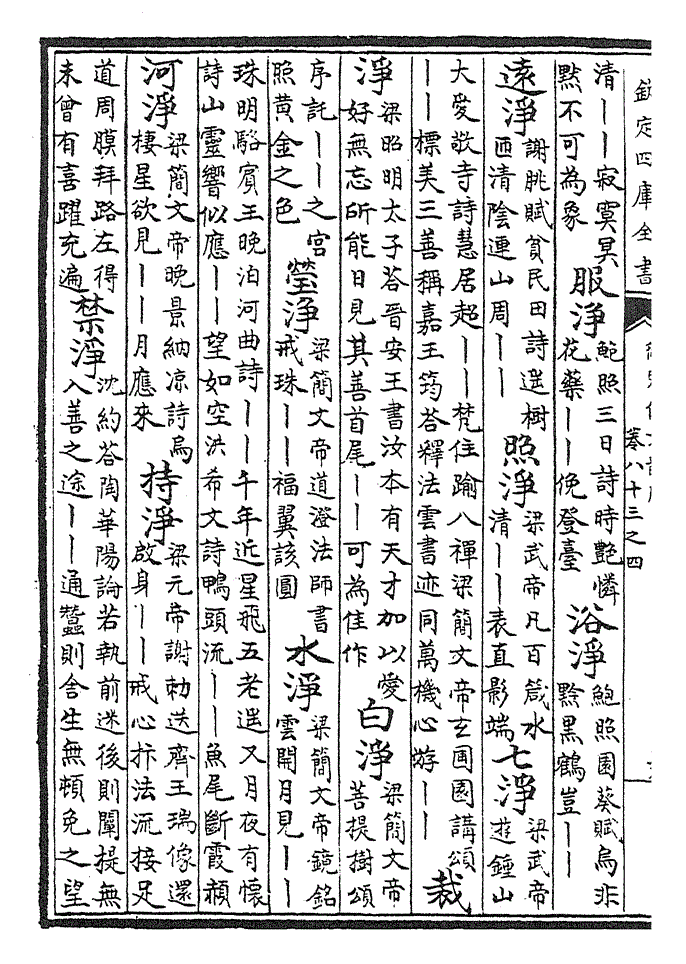 欽定四庫全書
卷八十三之四
清丨丨寂寞冥
黙不可為象
服淨
鮑照三日詩時艷憐
花藥丨丨俛登臺
浴淨
鮑照園葵賦烏非
黔黒鶴豈丨丨
遠淨
謝朓賦貧民田詩遥樹
匝清陰連山周丨丨
照淨
梁武帝凡百箴水
清丨丨表直影端
七淨
梁武帝
遊鍾山
大愛敬寺詩慧居超丨丨梵住踰八禪梁簡文帝玄圃園講頌
丨丨標美三善稱嘉王筠荅釋法雲書迹同萬機心游丨丨
裁
淨
梁昭明太子荅晉安王書汝本有天才加以愛
好無忘所能日見其善首尾丨丨可為佳作
白淨
梁簡文帝
菩提樹頌
序託丨丨之宫
照黄金之色
瑩淨
梁簡文帝道澄法師書
戒珠丨丨福翼該圓
水淨
梁簡文帝鏡銘
雲開月見丨丨
珠明駱賓王晚泊河曲詩丨丨千年近星飛五老遥又月夜有懷
詩山靈響似應丨丨望如空洪希文詩鴨頭流丨丨魚尾斷霞頳
河淨
梁簡文帝晚景納凉詩烏
棲星欲見丨丨月應來
持淨
梁元帝謝勅送齊王瑞像還
啟身丨丨戒心抃法流接足
道周膜拜路左得
未曾有喜躍充遍
禁淨
沈約荅陶華陽論若執前迷後則闡提無
入善之途丨丨通蠶則含生無頓免之望